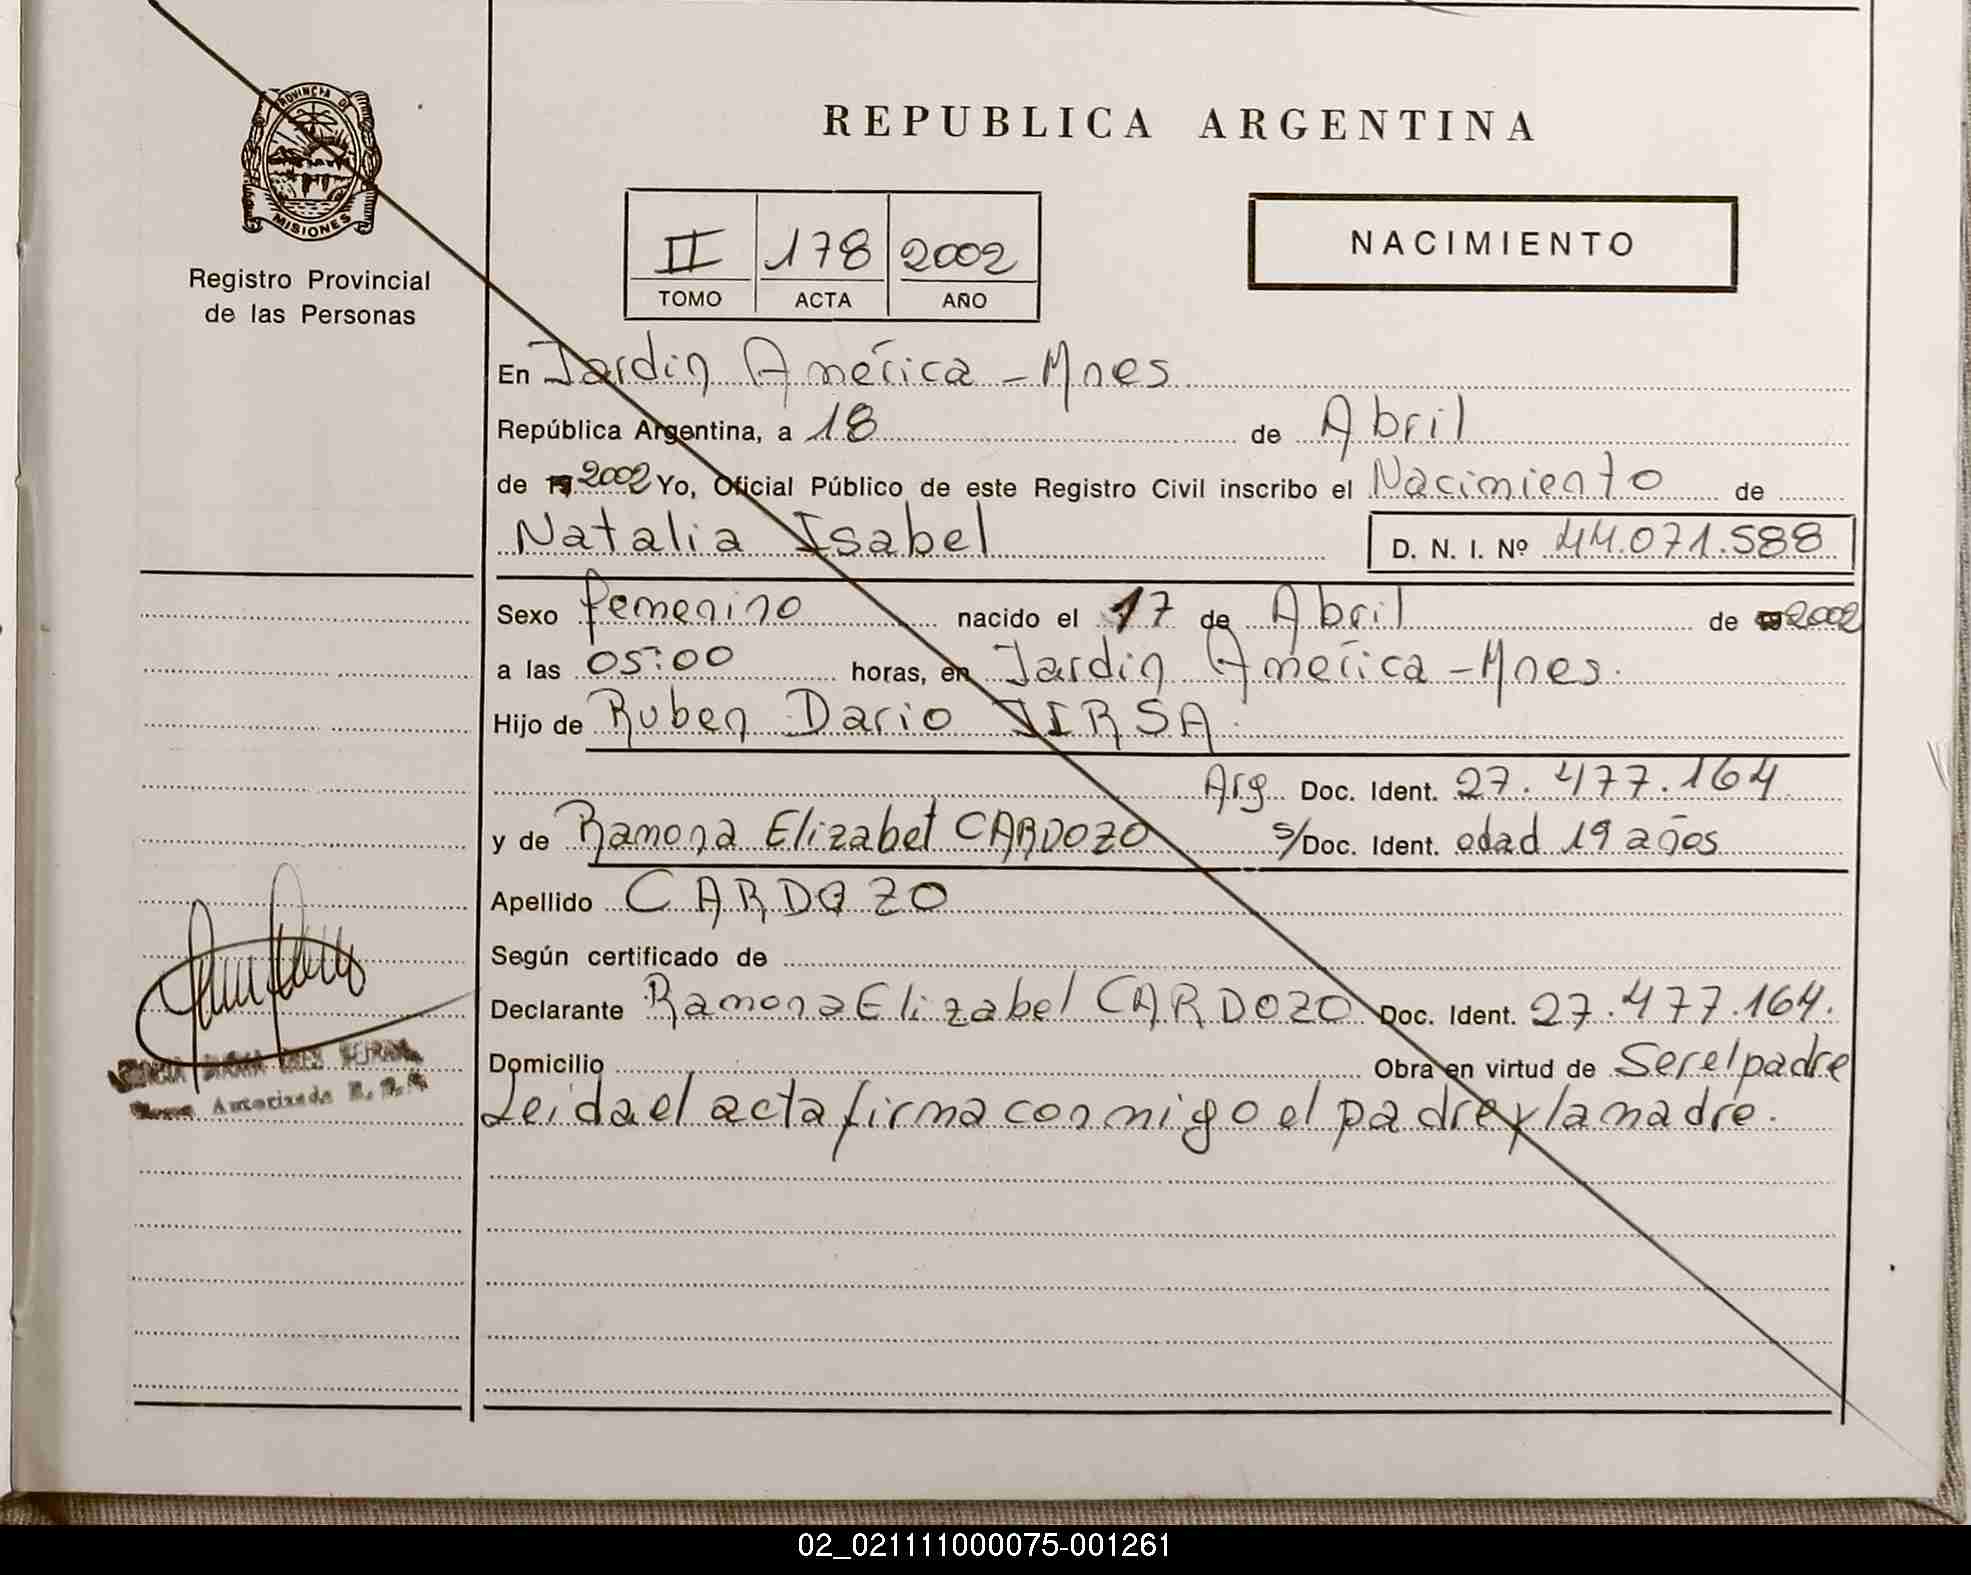 PROVINCIA DE
MISIONES
Registro Provincial
de las Personas
REPUBLICA ARGENTINA
II 178 2002
TOMO ACTA AÑO
NACIMIENTO
En Jardin América - Mnes
República Argentina, a 18 de Abril
de 19 2002 Yo, Oficial Público de este Registro Civil inscribo el Nacimiento de
Natalia Isabel D. N. I. Nº 44.071.588
Sexo femenino nacido el 17 de Abril de 19 2002
a las 05:00 horas, en Jardin América - Mnes.
Hijo de Ruben Dario JIRSA
Arg Doc. Ident. 27.477.164
y de Ramona Elizabet CARDOZO s/Doc. Ident. edad 19 años
Apellido CARDOZO
Según certificado de
Declarante Ramona Elizabel CARDOZO Doc. Ident. 27.477.164.
Domicilio Obra en virtud de Ser el padre
Leida el acta firma conmigo el padre y la madre.
Autorizada
02_021111000075-001261